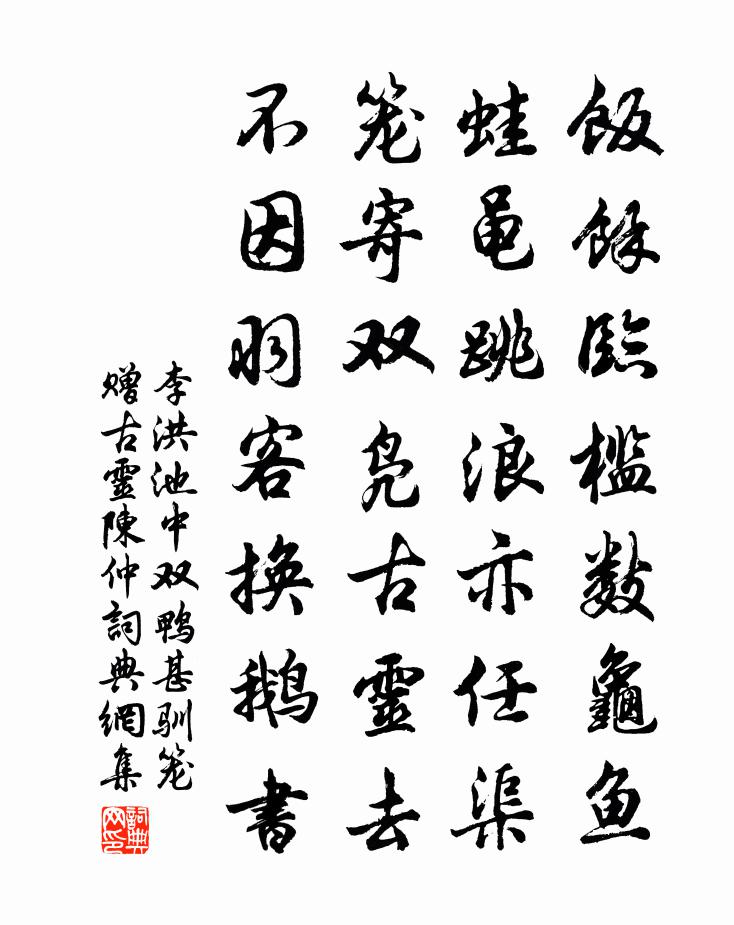 飯餘臨檻数龜鱼
蛙黾跳浪亦任渠
笼寄双凫古靈去
不因羽客換鹅書
李洪池中双鸭甚驯笼
赠古靈陳仲詞典網集
詞典网印